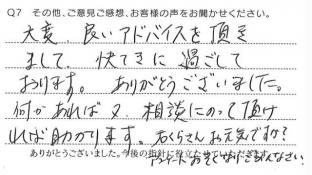 Q7 その他、ご意見ご感想、お客様の声をお聞かせください。
大変、良いアドバイスを頂き
まして、快てきに過ごして
おります。ありがとうございました。
何かあれば又、相談にのって頂け
れば助かります。石くらさんお元気ですか?
ありがとうございました。今後の指針に役立たせていただきます。
アンケートお遅くなりごめんなさい